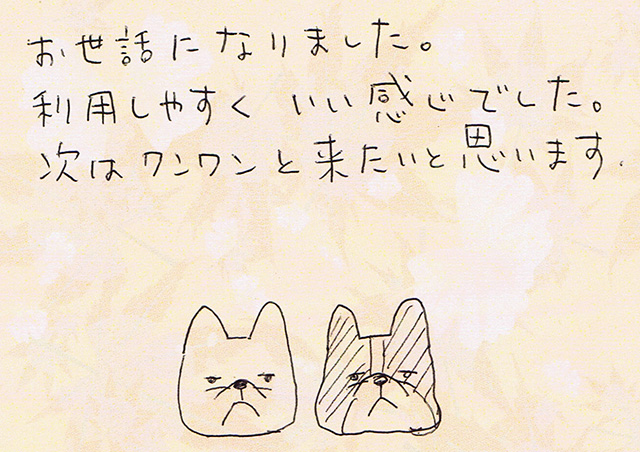 お世話になりました。
利用しやすく いい感じでした。
次はワンワンと来たいと思います.